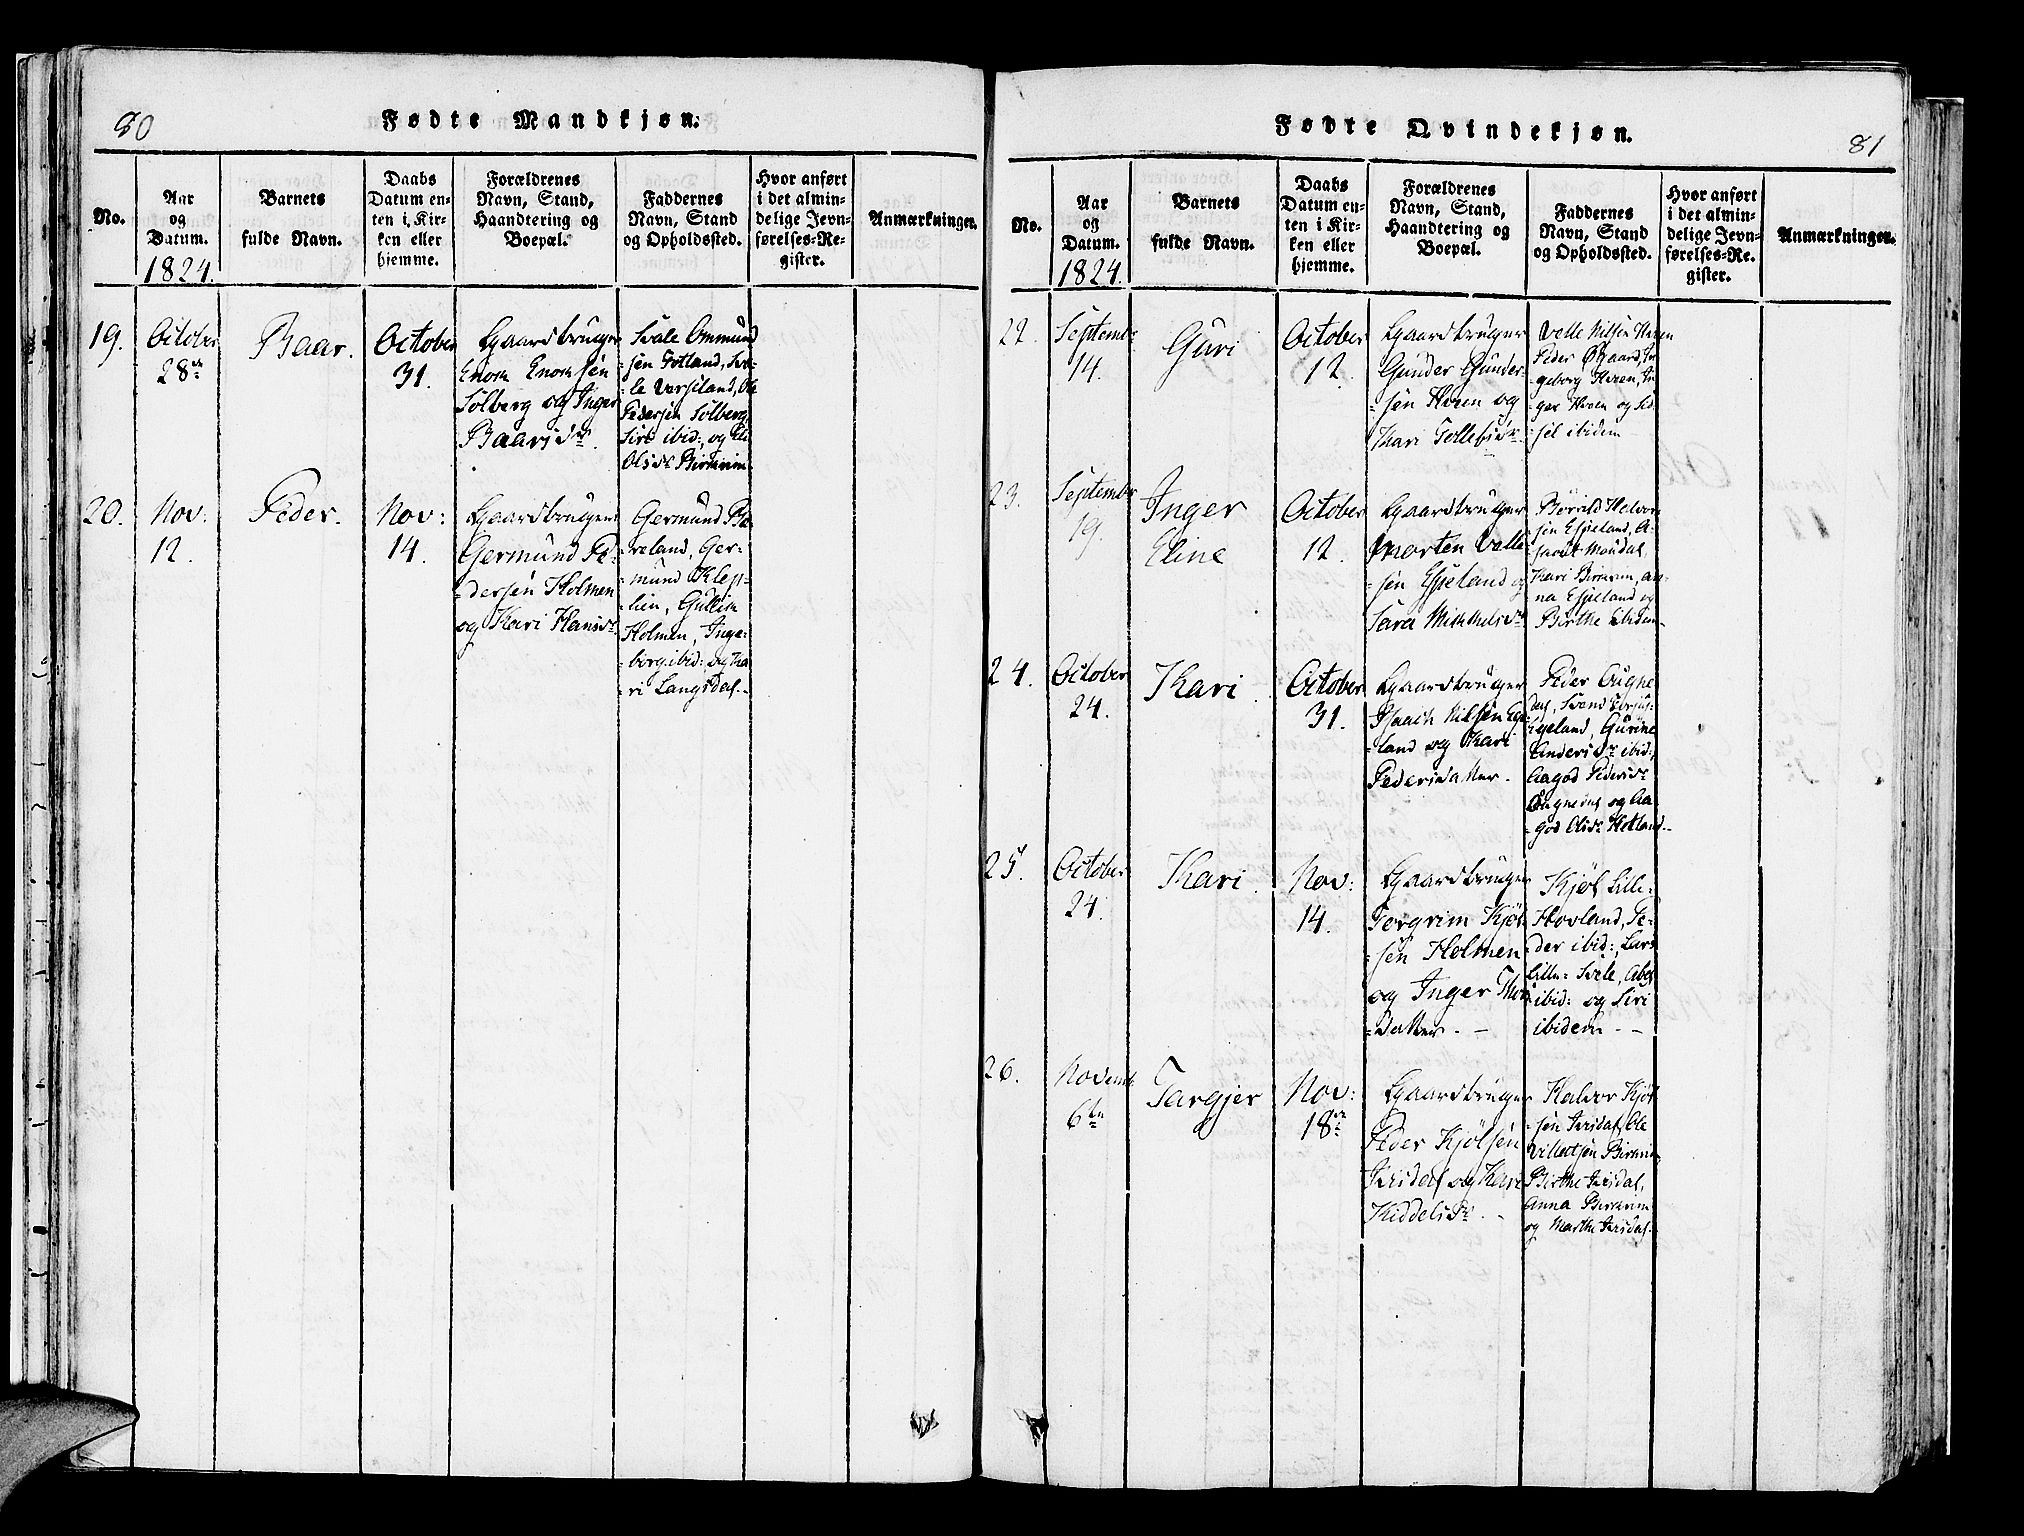 80
Fødte Mandkjøn.
No.
Aar
og
Datum.
1824.
Barnets
fulde Navn.
Daabs
Datum en-
ten i Kir-
ken eller
hjemme.
Forældrenes
Navn, Stand,
Haandtering og
Boepæl.
Faddernes
Navn, Stand
og Opholdssted.
Hvor anført
i det almin-
delige Jevn-
førelses-Re-
gister.
Anmærkninger.
19.
October
28de
Baar.
October
31.
Gaardbruger
Enok Enoksen
Solberg og Inger
Baarsdr.
Svale Ommund
sen Gotland, Sva-
le Versland, Ole
Pedersen Solberg
Siri ibid:, og Eli
Olsdr Birkrim
20.
Nov:
12.
Peder.
Nov:
14.
Gaardbruger
Germund Pe-
dersen Holmen
og Kari Hansdr.
Germund Bi-
reland, Ger-
mund Klep-
lien, Gullik
Holmen, Inge-
borg ibid: og Ka
ri Langsdal.
Fødte Qvindekjøn.
81
No.
Aar
og
Datum.
1824.
Barnets
fulde Navn.
Daabs
Datum en-
ten i Kir-
ken eller
hjemme.
Forældrenes
Navn, Stand,
Haandtering og
Boepæl.
Faddernes
Navn, Stand
og Opholdssted.
Hvor anført
i det almin-
delige Jevn-
førelses-Re-
gister.
Anmærkninger.
22.
Septembr
14.
Guri
October
12.
Gaardbruger
Gunder Gunder-
sen Hveen og
Kari Tollefsdr.
Velle Nilsen Hveen
Peder Øgaard, In
geborg Hveen, In
ger Hveen og Sid
sel ibidem
23.
September
19.
Inger
Eline
October
12.
Gaardbruger
Morten Velle-
sen Espeland og
Sara Mikkelsdr
Børild Halvor
sen Espeland, A-
Moudal,
Kari Birkrim, An-
na Espeland og
Birthe ibidem
24.
October
24.
Kari.
October
31.
Gaardbruger
Isaach Nilsen Ege-
land og Kari
Pedersdatter.
Peder Ougne
dal, Svend
Egeland, Gurine
Andersdr ibid:,
Aagod Pedersdr
Ougnedal og Aa-
god Olsdr Hetland
25.
October
24.
Kari.
Nov:
14.
Gaardbruger
Torgrim Kjøl-
sen Holmen
og Inger Thors
datter.
Kjøl Lille-
Hovland, Pe-
der ibid:, Lars
Lille-Svele, Abel
ibid: og Siri
ibidem
26.
Novemb.
6te
Targjer
Nov:
18de
Gaardbruger
Peder Kjølsen
Irisdal og Kari
Kiddelsdr.
Halvor Kjøl
sen Irisdal, Ole
Villadsen Birkrim
Birthe Irisdal,
Anna Birkrim
og Marthe Irisdal.